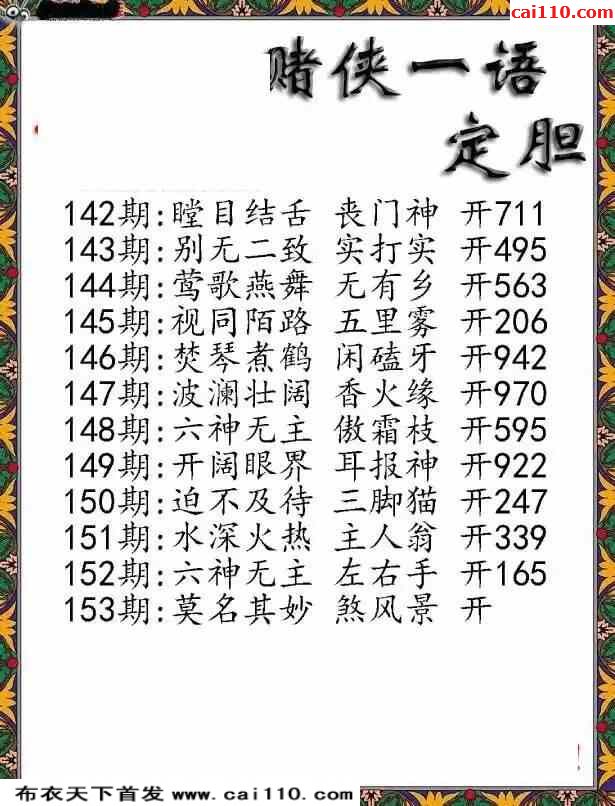 cai110.com
赌侠一语
定胆
142期:瞠目结舌 丧门神 开711
143期:别无二致 实打实 开495
144期:莺歌燕舞 无有乡 开563
145期:视同陌路 五里雾 开206
146期:焚琴煮鹤 闲磕牙 开942
147期:波澜壮阔 香火缘 开970
148期:六神无主 傲霜枝 开595
149期:开阔眼界 耳报神 开922
150期:迫不及待 三脚猫 开247
151期:水深火热 主人翁 开339
152期:六神无主 左右手 开165
153期:莫名其妙 煞风景 开
布衣天下首发 www.cai110.com